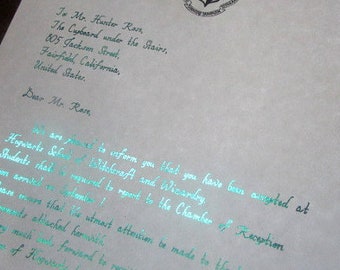 To Mr. Hunter Rose,
The Cupboard under the Stairs,
605 Jackson Street,
Fairfield, California,
United States.
Dear Mr. Rose,
We are proud to inform you that you have been accepted at
Hogwarts School of Witchcraft and Wizardry.
Students shall be required to report to the Chamber of Reception
upon arrival to September 1
ensure that the utmost attention be made to the
attached herewith.
very much look forward to
of Hogwarts